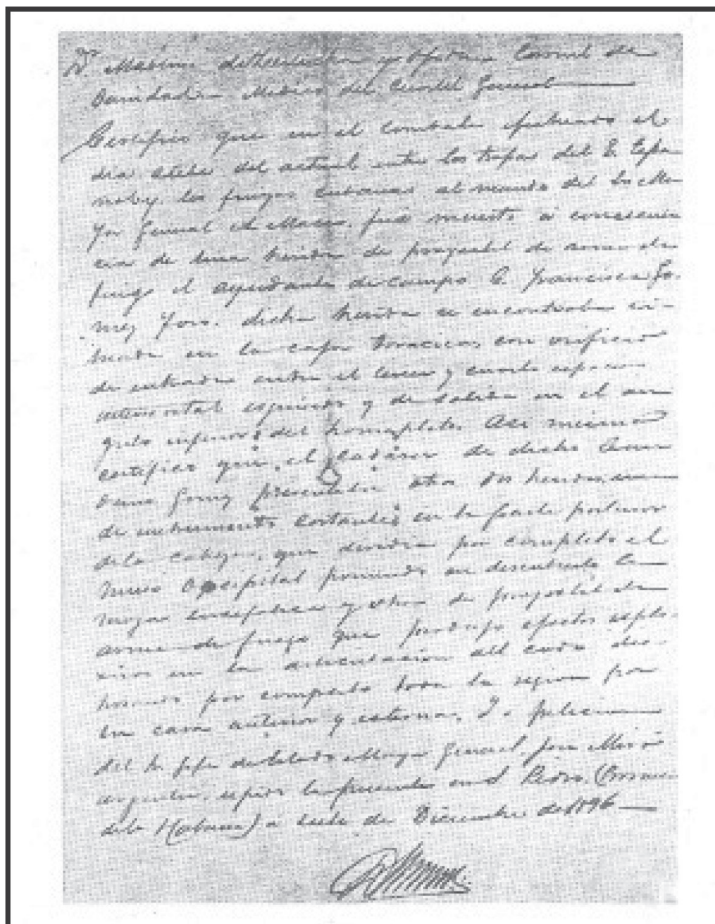 Dr. Máximo de Zertucha y Ojeda Coronel de
Sanidad Médico del Cuartel General
Certifico que en el combate efectuado el
día siete del actual entre las tropas del E. Espa
ñol y las fuerzas cubanas al mando del Mₐ
yor General A. Maceo, fué muerto a consecuen
cia de una herida de proyectil de arma de
fuego el ayudante de campo C. Francisco Gó
mez Toro. dicha herida se encontraba si
tuada en la caja toracica, con orificio
de entrada entre el tercer y cuarto espacio
intercostal izquierdo y de salida en el an
gulo inferior del homoplato. Asi mismo
certifico que, el cadáver de dicho
Gomez presentaba otras dos heridas, una
de instrumento cortante en la parte posterior
de la cabeza, que dividia por completo el
hueso Occipital poniendo en descubierto la
masa encefalica y otra de proyectil de
arma de fuego que produjo efectos explo
sivos en la articulacion del codo des
por completo toda la region por
su cara anterior y externa. Y a peticion
del Sr. Jefe de Estado Mayor General, José Miró
Argenter, expido la presente en S. Pedro, (Provincia
de la Habana) a siete de Diciembre de 1896